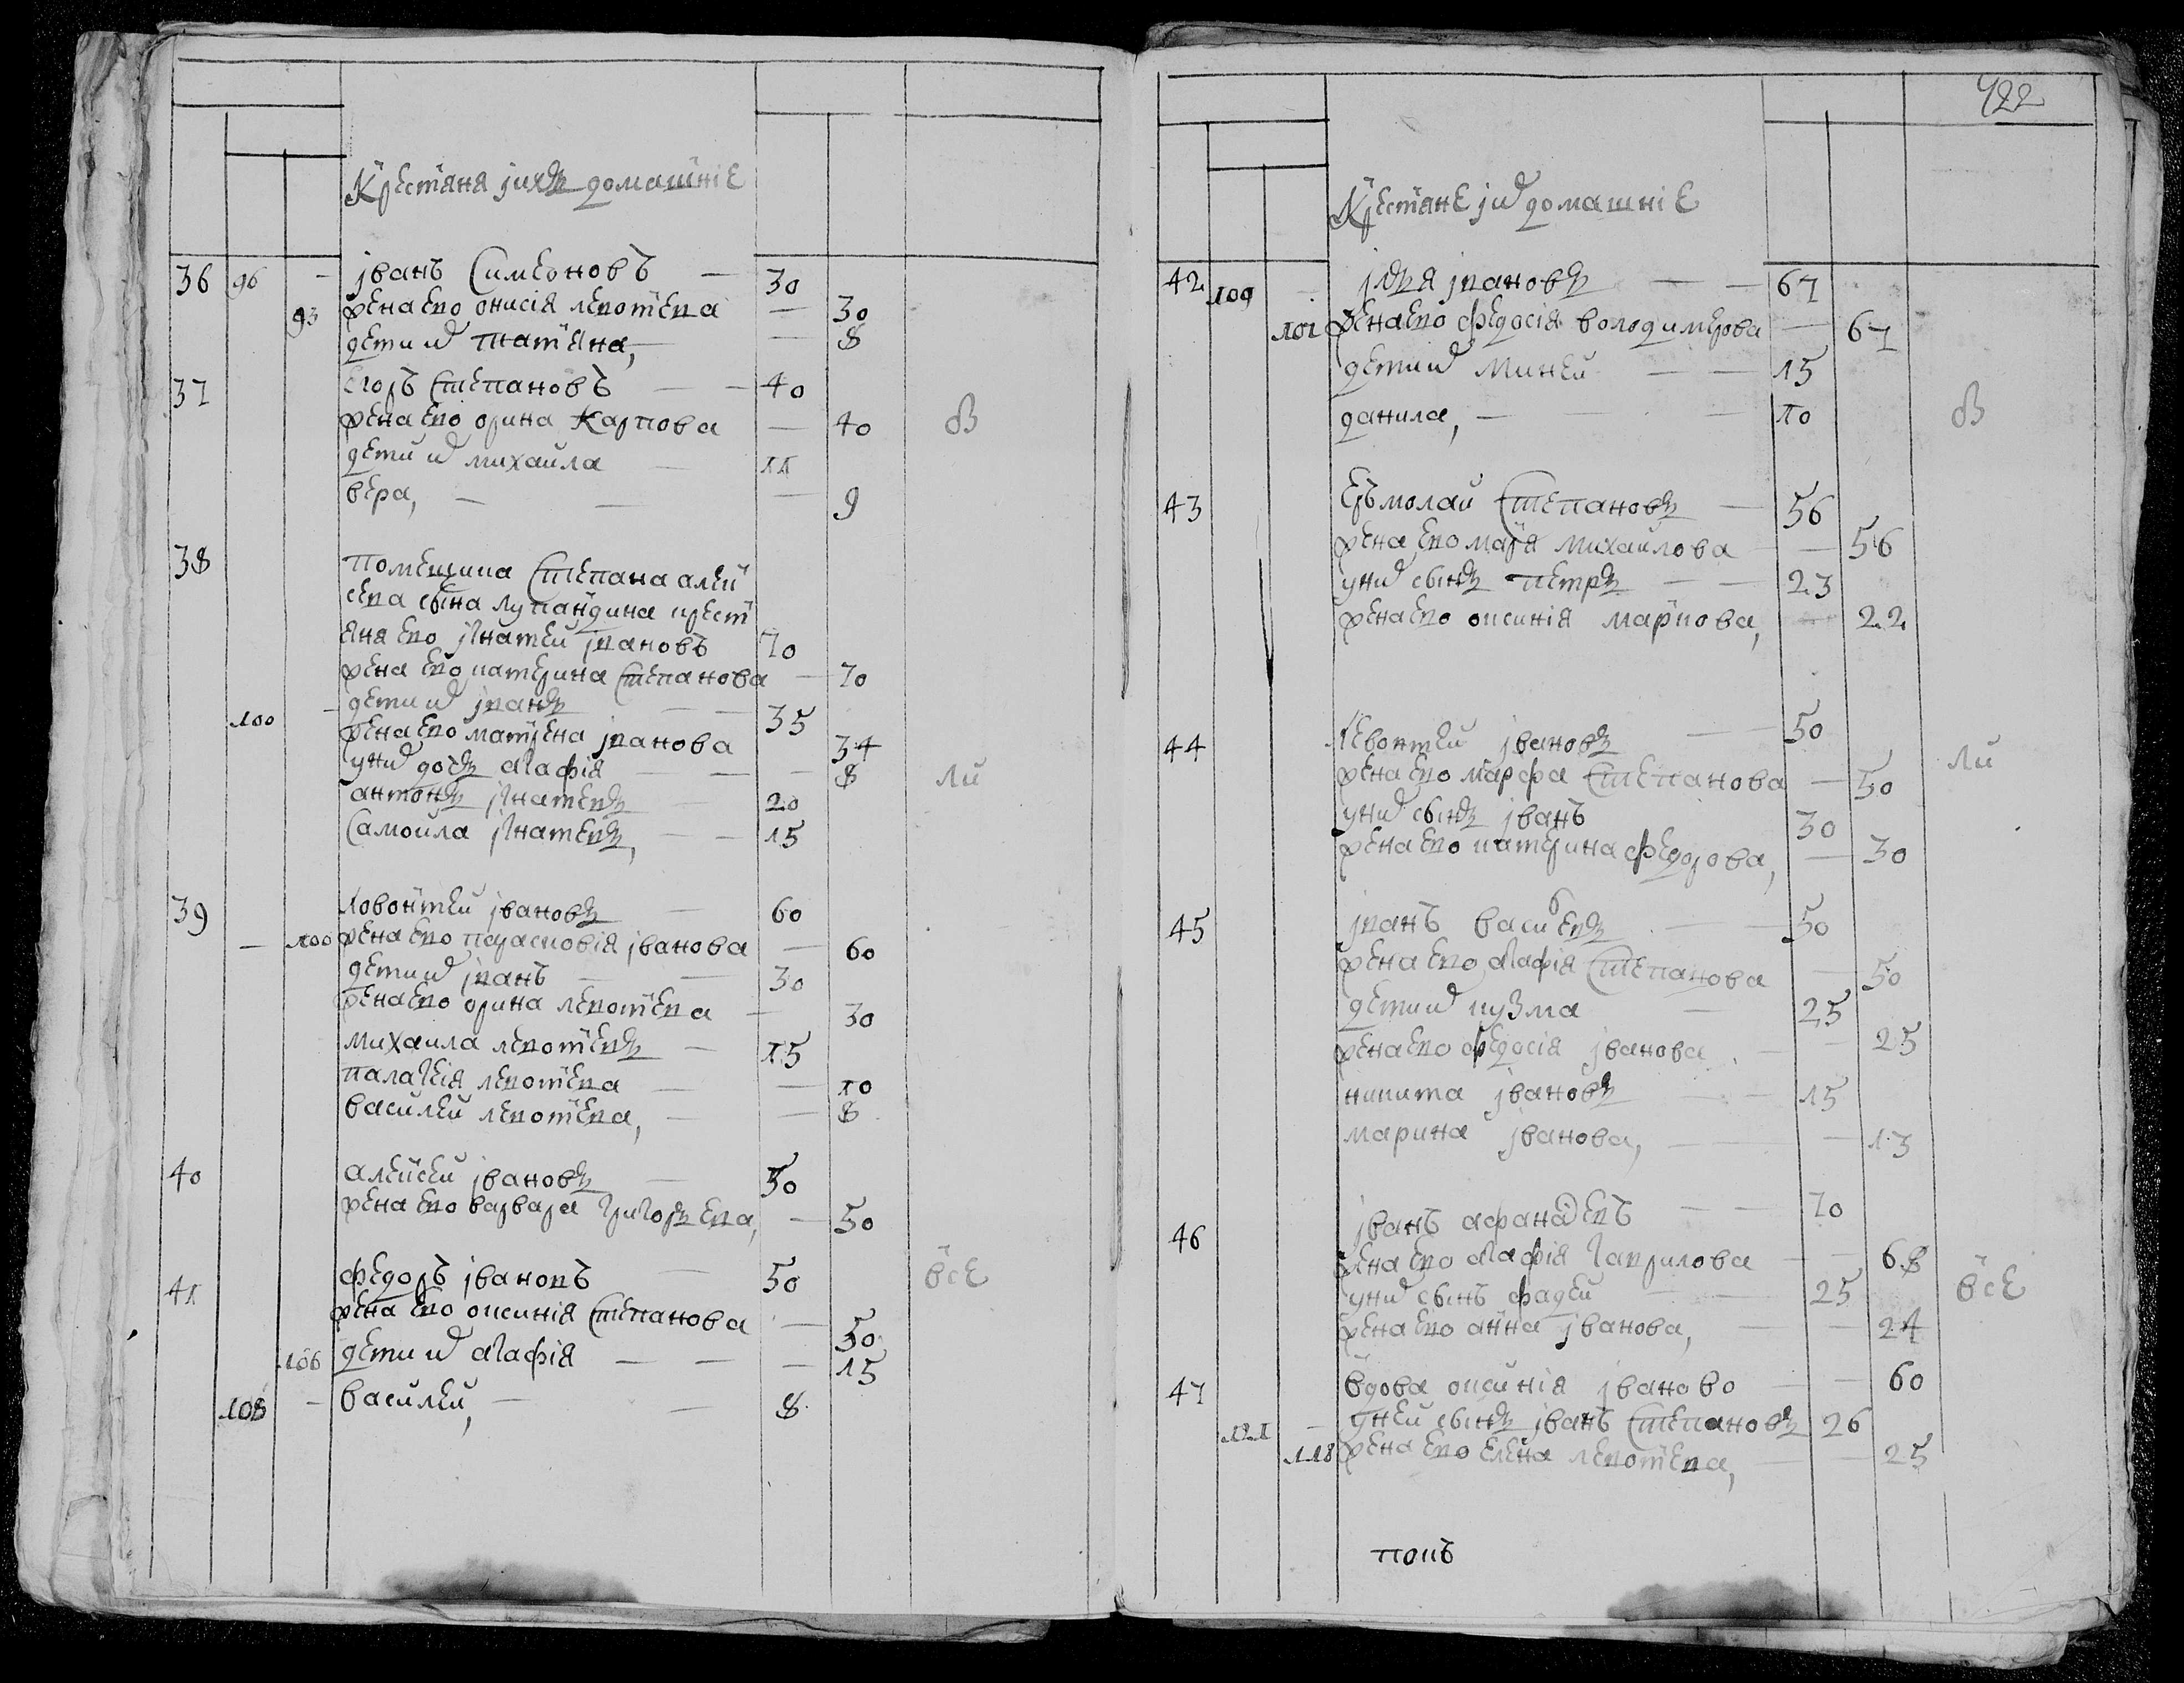 Крестьяня ихъ домашние
36 96 - иванъ Симеоновъ - 30
93 жена ево онисія леонтева - 30
дети их татияна, - 8
37 егоръ степановъ - 40
жена ево орина карпова - 40 об
дети их михаила - 11
вера, - 9
38 помещика степана алек
сеева сына лупандина крест
яня ево игнатеи ивановъ 70
жена ево катерина степанова - 70
100 - дети их иванъ - 35
жена ево матрена иванова 34
у них дочь агафія - 8 ли
антонъ игнатевъ - 20
самоила игнатевъ, - 15
39 ловонтеи ивановъ - 60
- 100 жена ево парасковія иванова - 60
дети их иванъ - 30
жена ево орина леонтева - 30
михаила леонтевъ - 15
палагея леонтева - 10
василеи леонтева, - 8
40 алексеи ивановъ - 50
жена ево варвара григорьева, - 50
41 федоръ ивановъ - 50 все
жена ево оксинія степанова - 50
106 дети их агафія - 15
108 - василеи, - 8
422
Крестьяне их домашніе
42 109 - илья ивановъ - 67
101 жена ево федосія володимерова - 67
дети их микеи - 15
данила, - 10 об
43 ермолаи степановъ - 56
жена ево маря михаилова - 56
у них сынъ петръ - 23
жена ево оксинія маркова, - 22
44 левонтеи ивановъ - 50
жена ево марфа степанова - 50 ли
у них сынъ иванъ 30
жена ево катерина федорова, - 30
45 иванъ василевъ - 50
жена ево агафія степанова - 50
дети их кузма - 25
жена ево федосія иванова - 25
никита ивановъ - 15
марина иванова, - 13
46 иванъ афанасевъ - 70
жена ево агафія гаврилова - 68
у них сынъ фадеи - 25 все
жена ево анна иванова, - 24
47 вдова оксинія иваново - 60
121 - у неи сынъ иванъ степановъ 26
118 жена ево елена леонтева, - 25
попъ